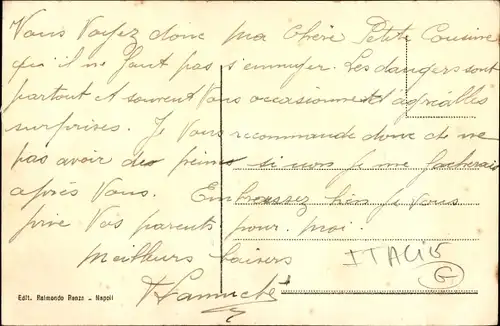 Vous Voyez donc ma Chère Petite Cousine
qu'il ne faut pas s'ennuyer. Les dangers sont
partout et souvent Vous occasionnent d'agréables
surprises. Je Vous recommande donc de ne
pas avoir des peines si non je me facherais
après Vous. Embrassez bien je Vous
prie Vos parents pour moi.
Meilleurs baisers
ITALIE
G
Edit. Raimondo Renza - Napoli